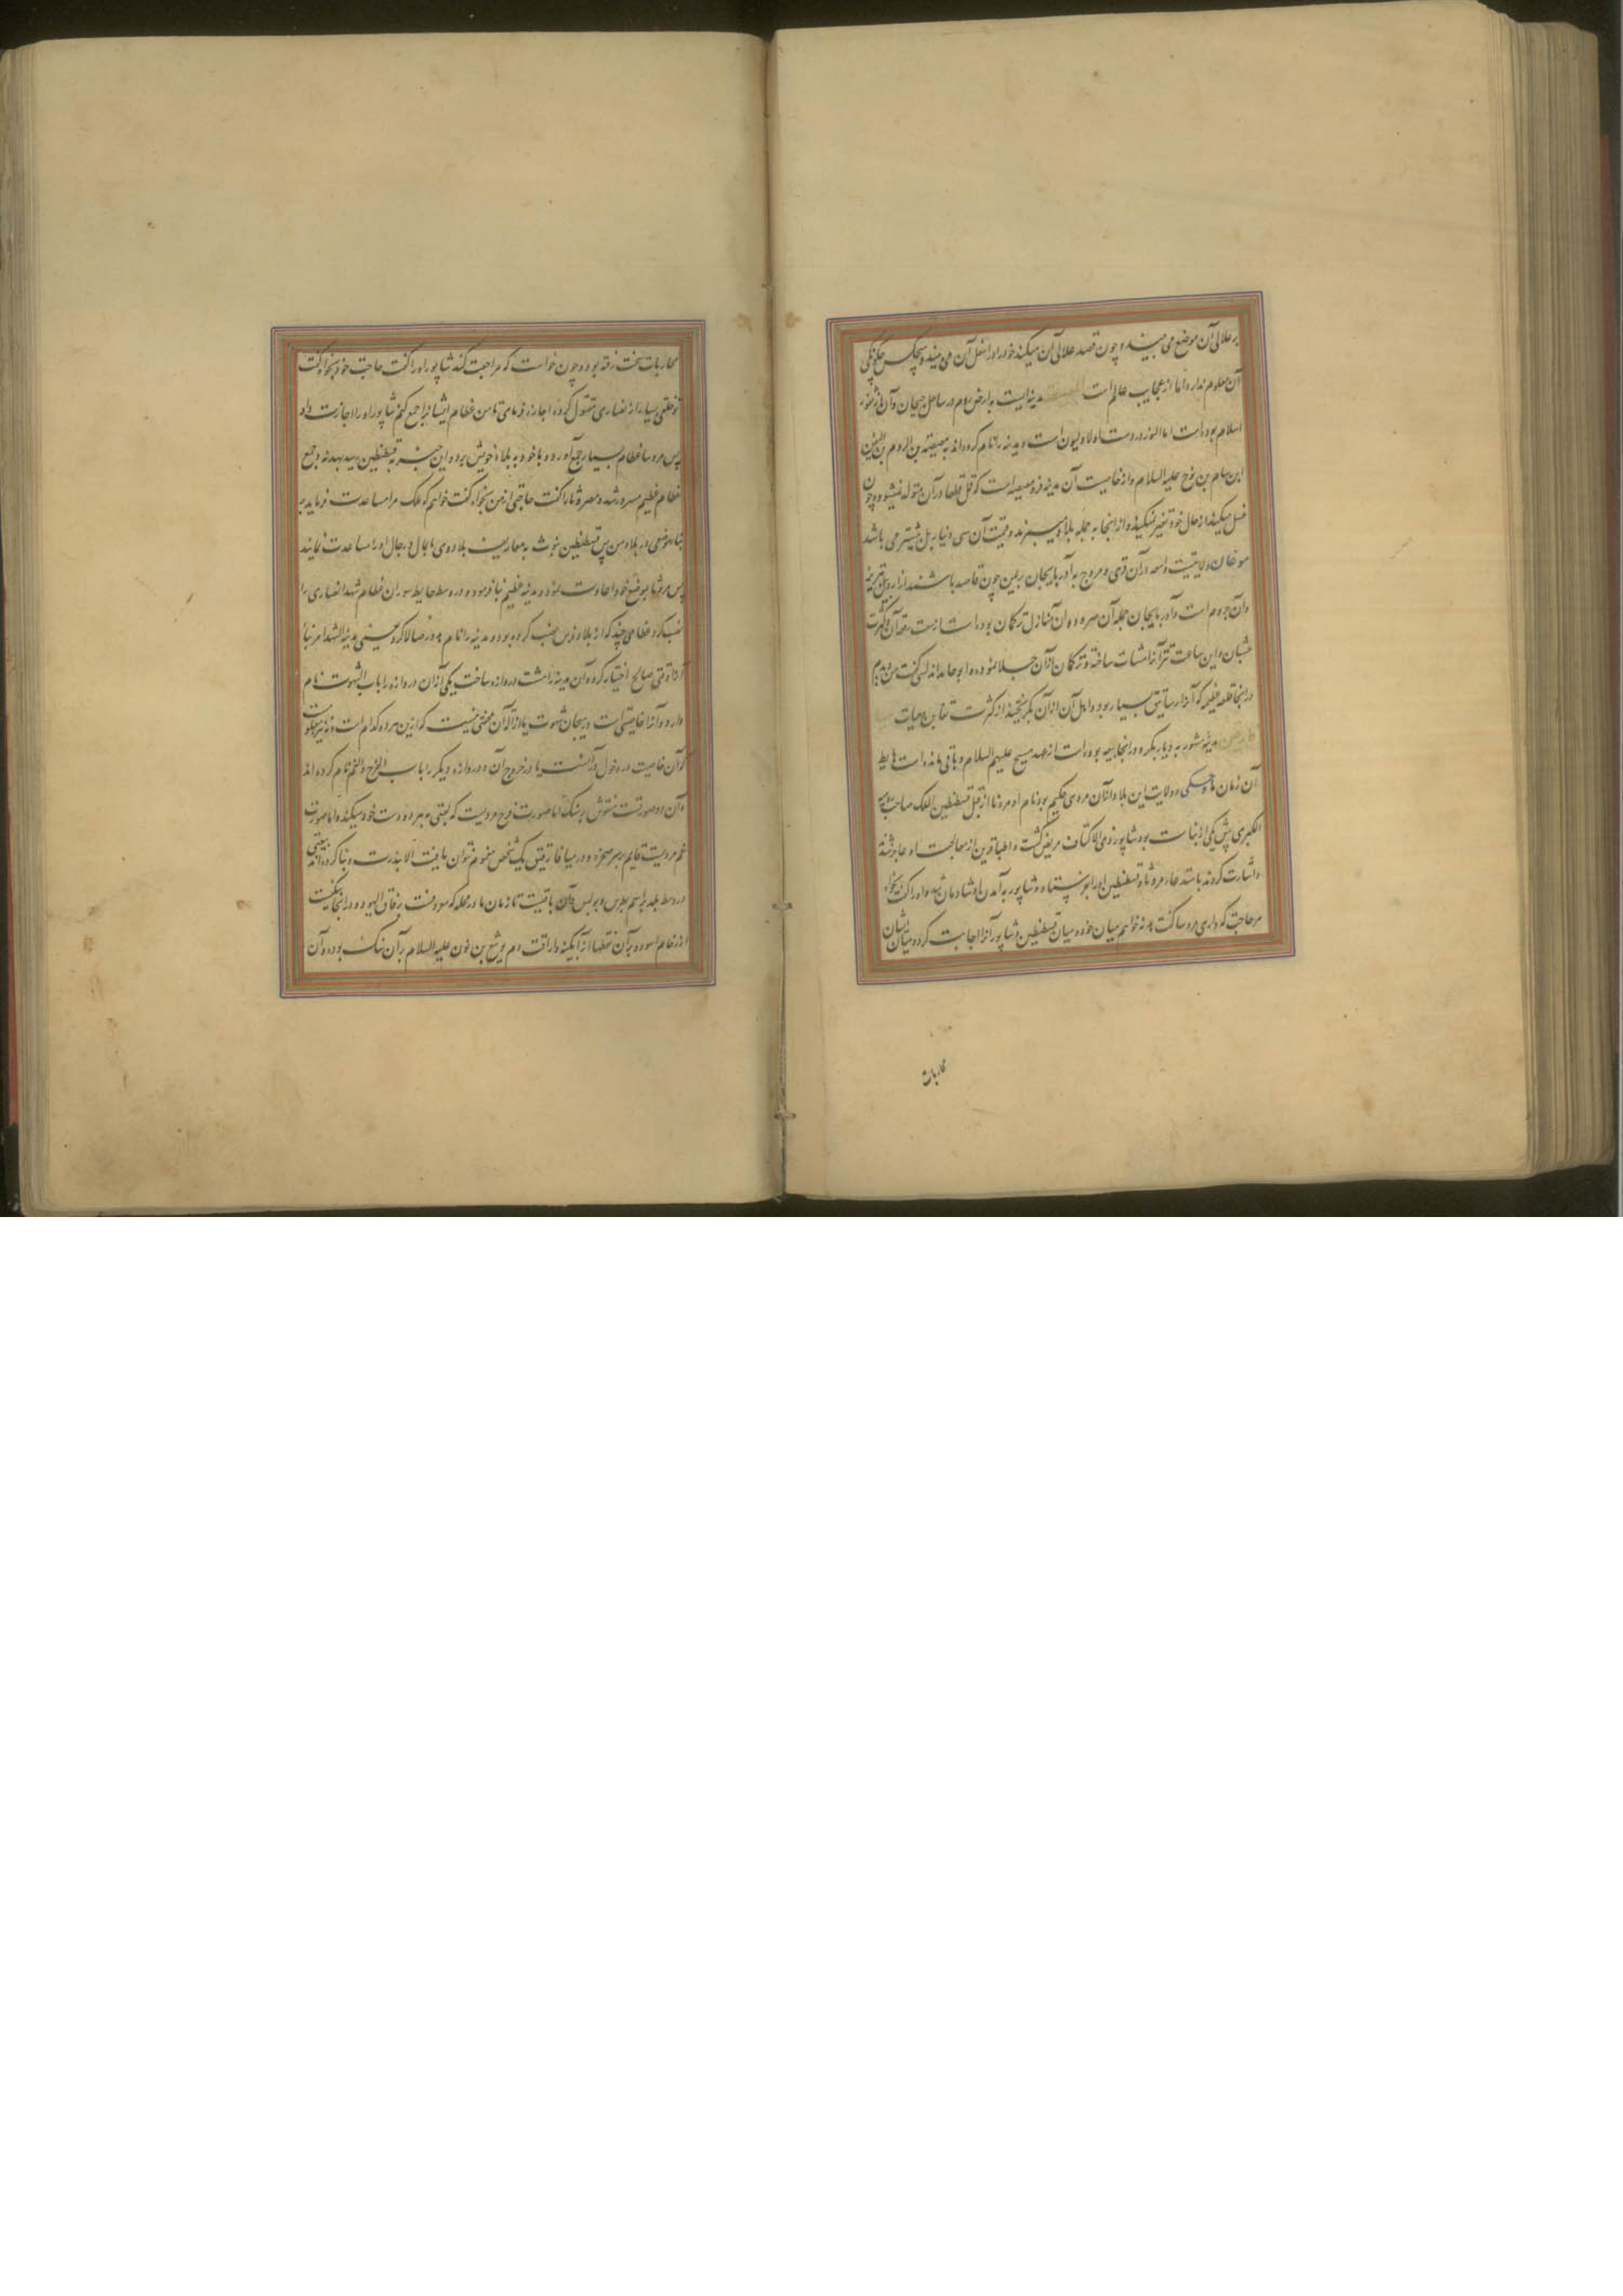 بر علالی آن موضع می بیند و چون قصد علالی آن میکند خود را در اسفل آن می بیند و هیچکس چگونگی
آن معلوم ندارد و اما از عجایب عالم است مدینه ایست به ارض روم در ساحل جیحان و آن از ثغور
اسلام بوده است اما الیوم در دست اولاد لیون است و مدینه را نام کرده اند به مصیصه بن الروم بن الیفن
ابن سام بن نوح علیه السلام و از خاصیت آن مدینه فرو مصیصه است که قمل قطعا در آن متولد نمیشود و چون
غسل میکنند از حال خود تغیر نمیکند و از انجا به جمله بلاد میبرند و قیمت آن سی دینار بل بیشتر می باشد
موغان ولایتیست واسعه در آن قری و مروج به آذربایجان بر یمین چون قاصد باشند از اردبیل تبریز
و آن جروم است و آذربایجان جمله آن صرود و آن منازل ترکمان بوده است از سعت رقعه آن و کثرت
عشبان و این ساعت تتر آنرا مشتات ساخته و ترکمان از آن جلا نموده و ابو حامد اندلسی گفت من دیدم
در انجا قلعه عظیمه که آنرا رساتیق بسیار بود و اهل آن از آن بگریختند از کثرت ثعابین و حیات
مدینه مشهور به دیار بکر و در انجا بیعه بوده است از عهد مسیح علیهم السلام و باقی مانده است حایط
آن زمان ما و حکی ولایت این بلاد و آن مردی حکیم بود نام او مروثا از قبل قسطنطین الملک صاحب رومیه
الکبری پیش یکی از بنات بود شاپور ذی الاکتاف مریض گشت و اطبا قرین از معالجت او عاجز شدند
و اشارت کردند باستدعاء مروثا و قسطنطین او را بفرستاد و شاپور به آمدن او شادمان شد و او را گفت بخواه
هر حاجت که داری مروثا گفت هدنه خواهم میان خود و میان قسطنطین و شاپور آنرا اجابت کرد و میان ایشان
محاربات
محاربات سخت رفته بود و چون خواست که مراجعت کند شاپور او را گفت حاجت خود بخواه گفت
تو خلقی بسیار از نصاری مقتول کردهٔ اجازه فرمای تا من عظام ایشانرا جمع کنم شاپور او را اجازت داد
پس مروثا عظام بسیار جمع آورد و با خود به بلاد خویش برد و این خبر به قسطنطین رسید بهدنه و جمع
عظام عظیم مسرور شد و مر مروثا را گفت حاجتی از من بخواه گفت خواهم که ملک مرا مساعدت فرماید بر
بناء موضعی در بلاد من پس قسطنطین نوشت به معاریف بلاد وی تا بمال و رجال او را مساعدت نمایند
پس مروثا بموضع خود اعادت نمود و مدینه عظیم بنا فرمود و در وسط حایط سور آن عظام شهدا نصاری را
نصب کرد عظامی چند که از بلاد فرس نصب کرده بود و مدینه را نام مدورصالا کرد یعنی مدینة الشهدا مر بناء
آنرا وقتی صالح اختیار کرد و آن مدینه را هشت دروازه ساخت یکی از آن دروازه را باب الشهوت نام
دارد و آنرا خاصیتی است در هیجان شهوت یا ازالهٔ آن محقق نیست که ازین هر دو کدام است و نیز معلوم نیست
که آن خاصیت در دخول در آنست یا در خروج از آن و دروازه دیگر را باب الفرح والغم نام کرده اند
و آن دو صورتست منقوش بر سنگ اما صورت فرح مردیست که بشتی بهر دو دست خود میکند و اما صورت
غم مردیست قایم بر سر صخره و در میافارقین یک شخص مغموم نتوان یافت الا بندرت و بنا کرده اند بیعتی
در وسط بلد براسم بطرس و بولس و آن باقیست تا زمان ما در محله که معروفست بزقاق الیهود و در انجا جرنیست
از رخام اسود و بر آن منطقها از آبگینه و در آنست دم یوشع بن نون علیه السلام بر آن سنگ بوده و آن